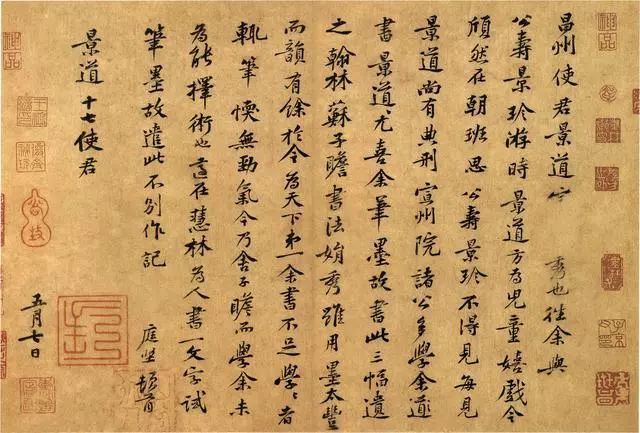 昌州使君景道宗 秀也往余與
公壽景珍游時景道方為兒童嬉戲今
頎然在朝班思公壽景珍不得見每見
景道尚有典刑宣州院諸公多學余
書景道尤喜余筆墨故書此三幅遺
之翰林蘇子瞻書法娟秀雖用墨太豐
而韻有餘於今為天下第一余書不足學學者
輒筆愞無勁氣今乃舍子瞻而學余未
為能擇術也適在慧林為人書一文字試
筆墨故遣此不別作記
庭堅頓首
景道十七使君
五月七日